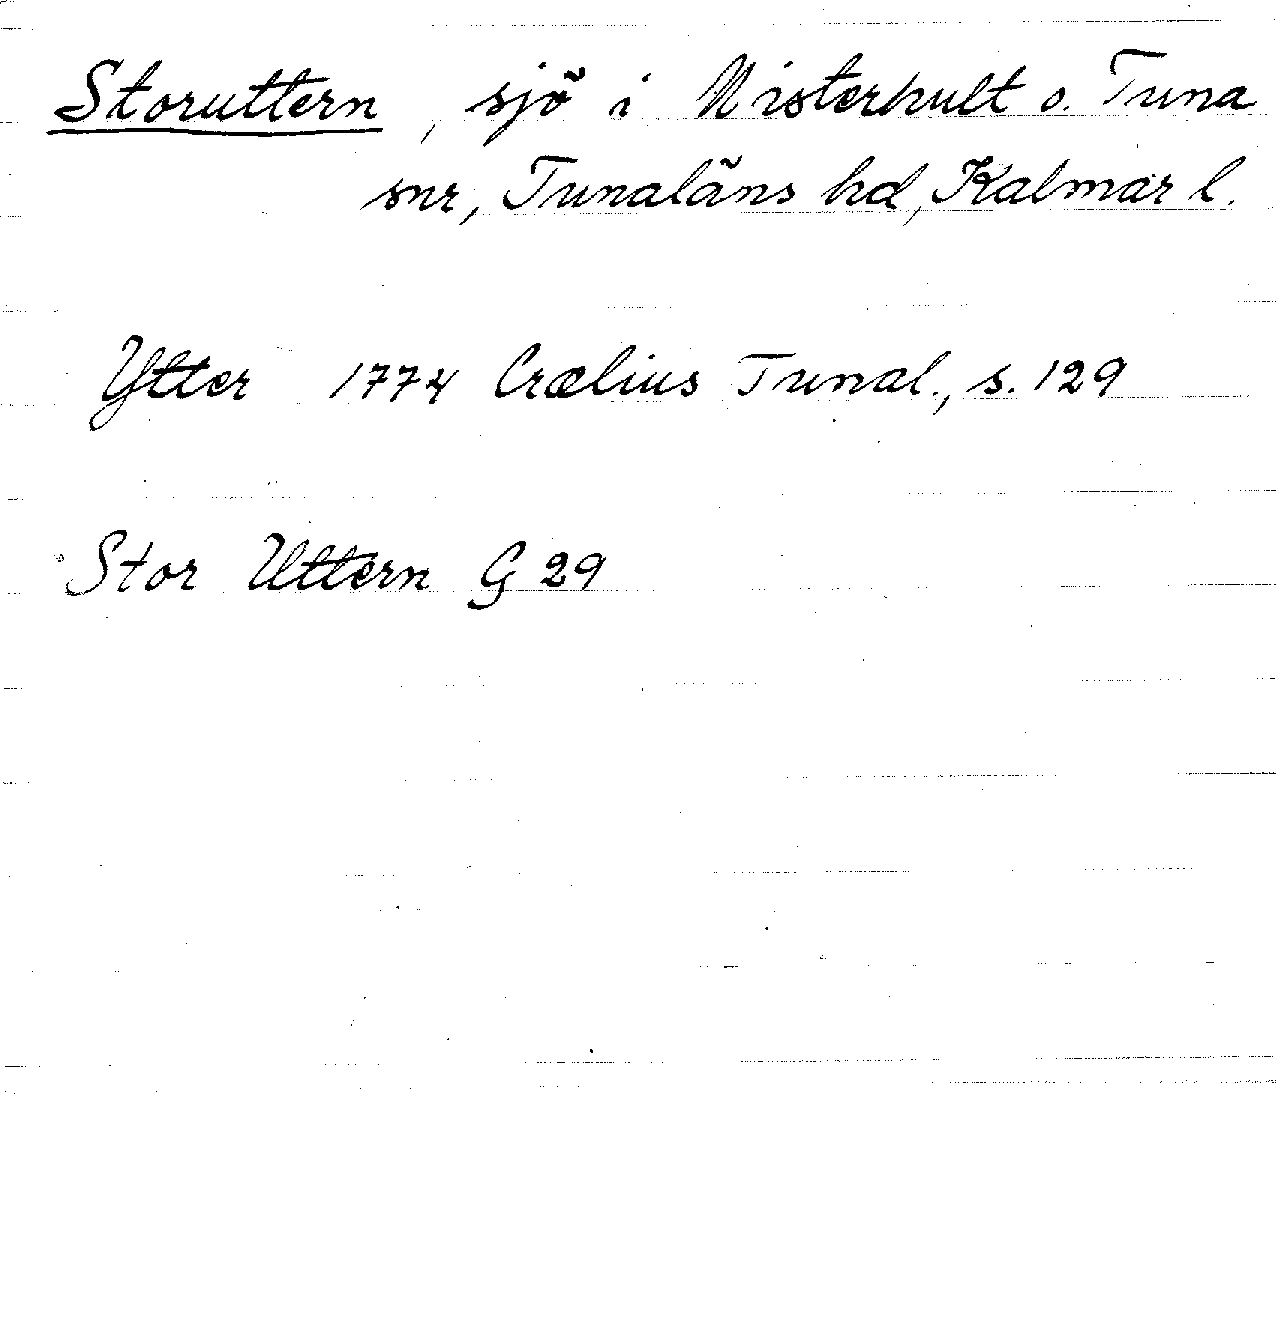 Storuttern, sjö i Misterhult o. Tuna
snr, Tunaläns hd, Kalmar l.
Ytter 1774 Crælius Tunal., s. 129
Stor Uttern G 29